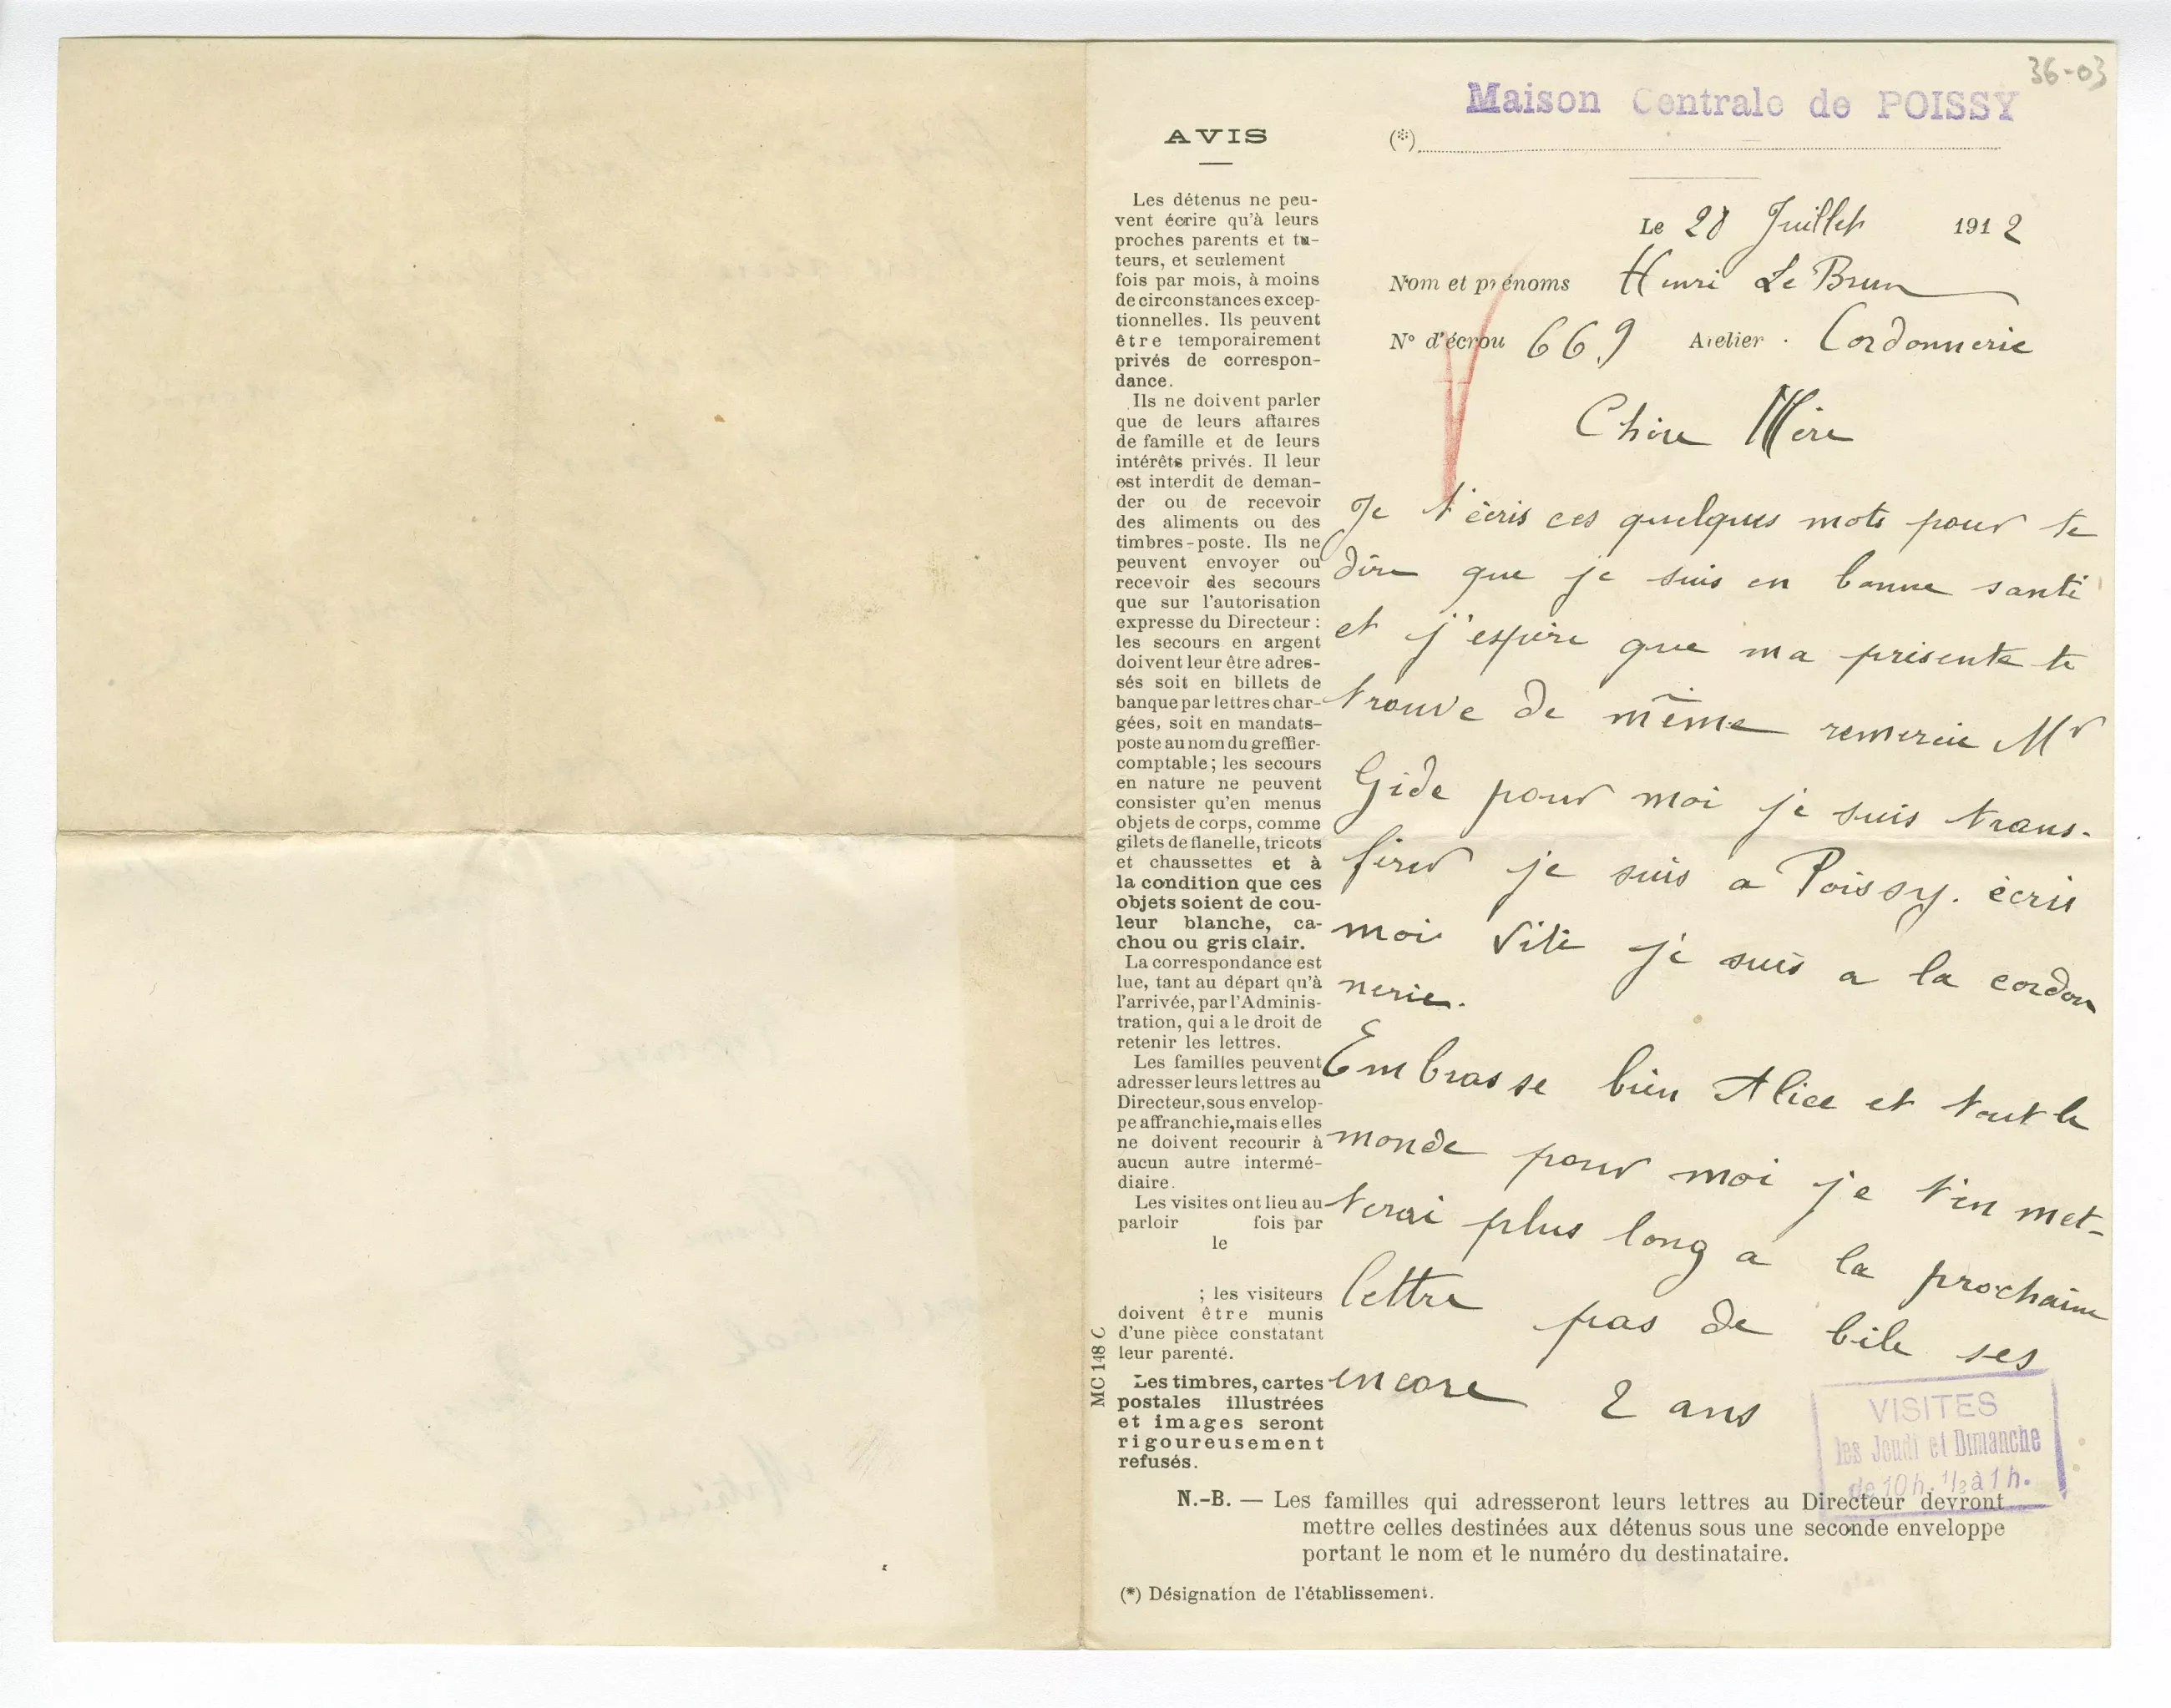 36-03
Maison Centrale de POISSY
AVIS
(*)
Les détenus ne peu-
vent écrire qu'à leurs
proches parents et tu-
teurs, et seulement
fois par mois, à moins
de circonstances excep-
tionnelles. Ils peuvent
être temporairement
privés de correspon-
dance.
Ils ne doivent parler
que de leurs affaires
de famille et de leurs
intérêts privés. Il leur
est interdit de deman-
der ou de recevoir
des aliments ou des
timbres-poste. Ils ne
peuvent envoyer ou
recevoir des secours
que sur l'autorisation
expresse du Directeur :
les secours en argent
doivent leur être adres-
sés soit en billets de
banque par lettres char-
gées, soit en mandats-
poste au nom du greffier-
comptable ; les secours
en nature ne peuvent
consister qu'en menus
objets de corps, comme
gilets de flanelle, tricots
et chaussettes et à
la condition que ces
objets soient de cou-
leur blanche, ca-
chou ou gris clair.
La correspondance est
lue, tant au départ qu'à
l'arrivée, par l'Adminis-
tration, qui a le droit de
retenir les lettres.
Les familles peuvent
adresser leurs lettres au
Directeur, sous envelop-
pe affranchie, mais elles
ne doivent recourir à
aucun autre intermé-
diaire.
Les visites ont lieu au
parloir fois par
le
; les visiteurs
doivent être munis
d'une pièce constatant
leur parenté.
Les timbres, cartes
postales illustrées
et images seront
rigoureusement
refusés.
MC 148 C
Le 28 Juillet 1912
Nom et prénoms Henri Le Brun
N° d'écrou 669 Atelier . Cordonnerie
Chère Mère
Je t'écris ces quelques mots pour te
dire que je suis en bonne santé
et j'espère que ma présente te
trouve de même remercie Mr
Gide pour moi je suis trans-
ferer je suis a Poissy. écris
moi vite je suis a la cordon
nerie.
Embrasse bien Alice et tout le
monde pour moi je t'en met-
terai plus long a la prochaine
lettre pas de bile ses
encore 2 ans
VISITES
les Jeudi et Dimanche
de 10 h. 1/2 à 1 h.
N.-B. — Les familles qui adresseront leurs lettres au Directeur devront
mettre celles destinées aux détenus sous une seconde enveloppe
portant le nom et le numéro du destinataire.
(*) Désignation de l'établissement.